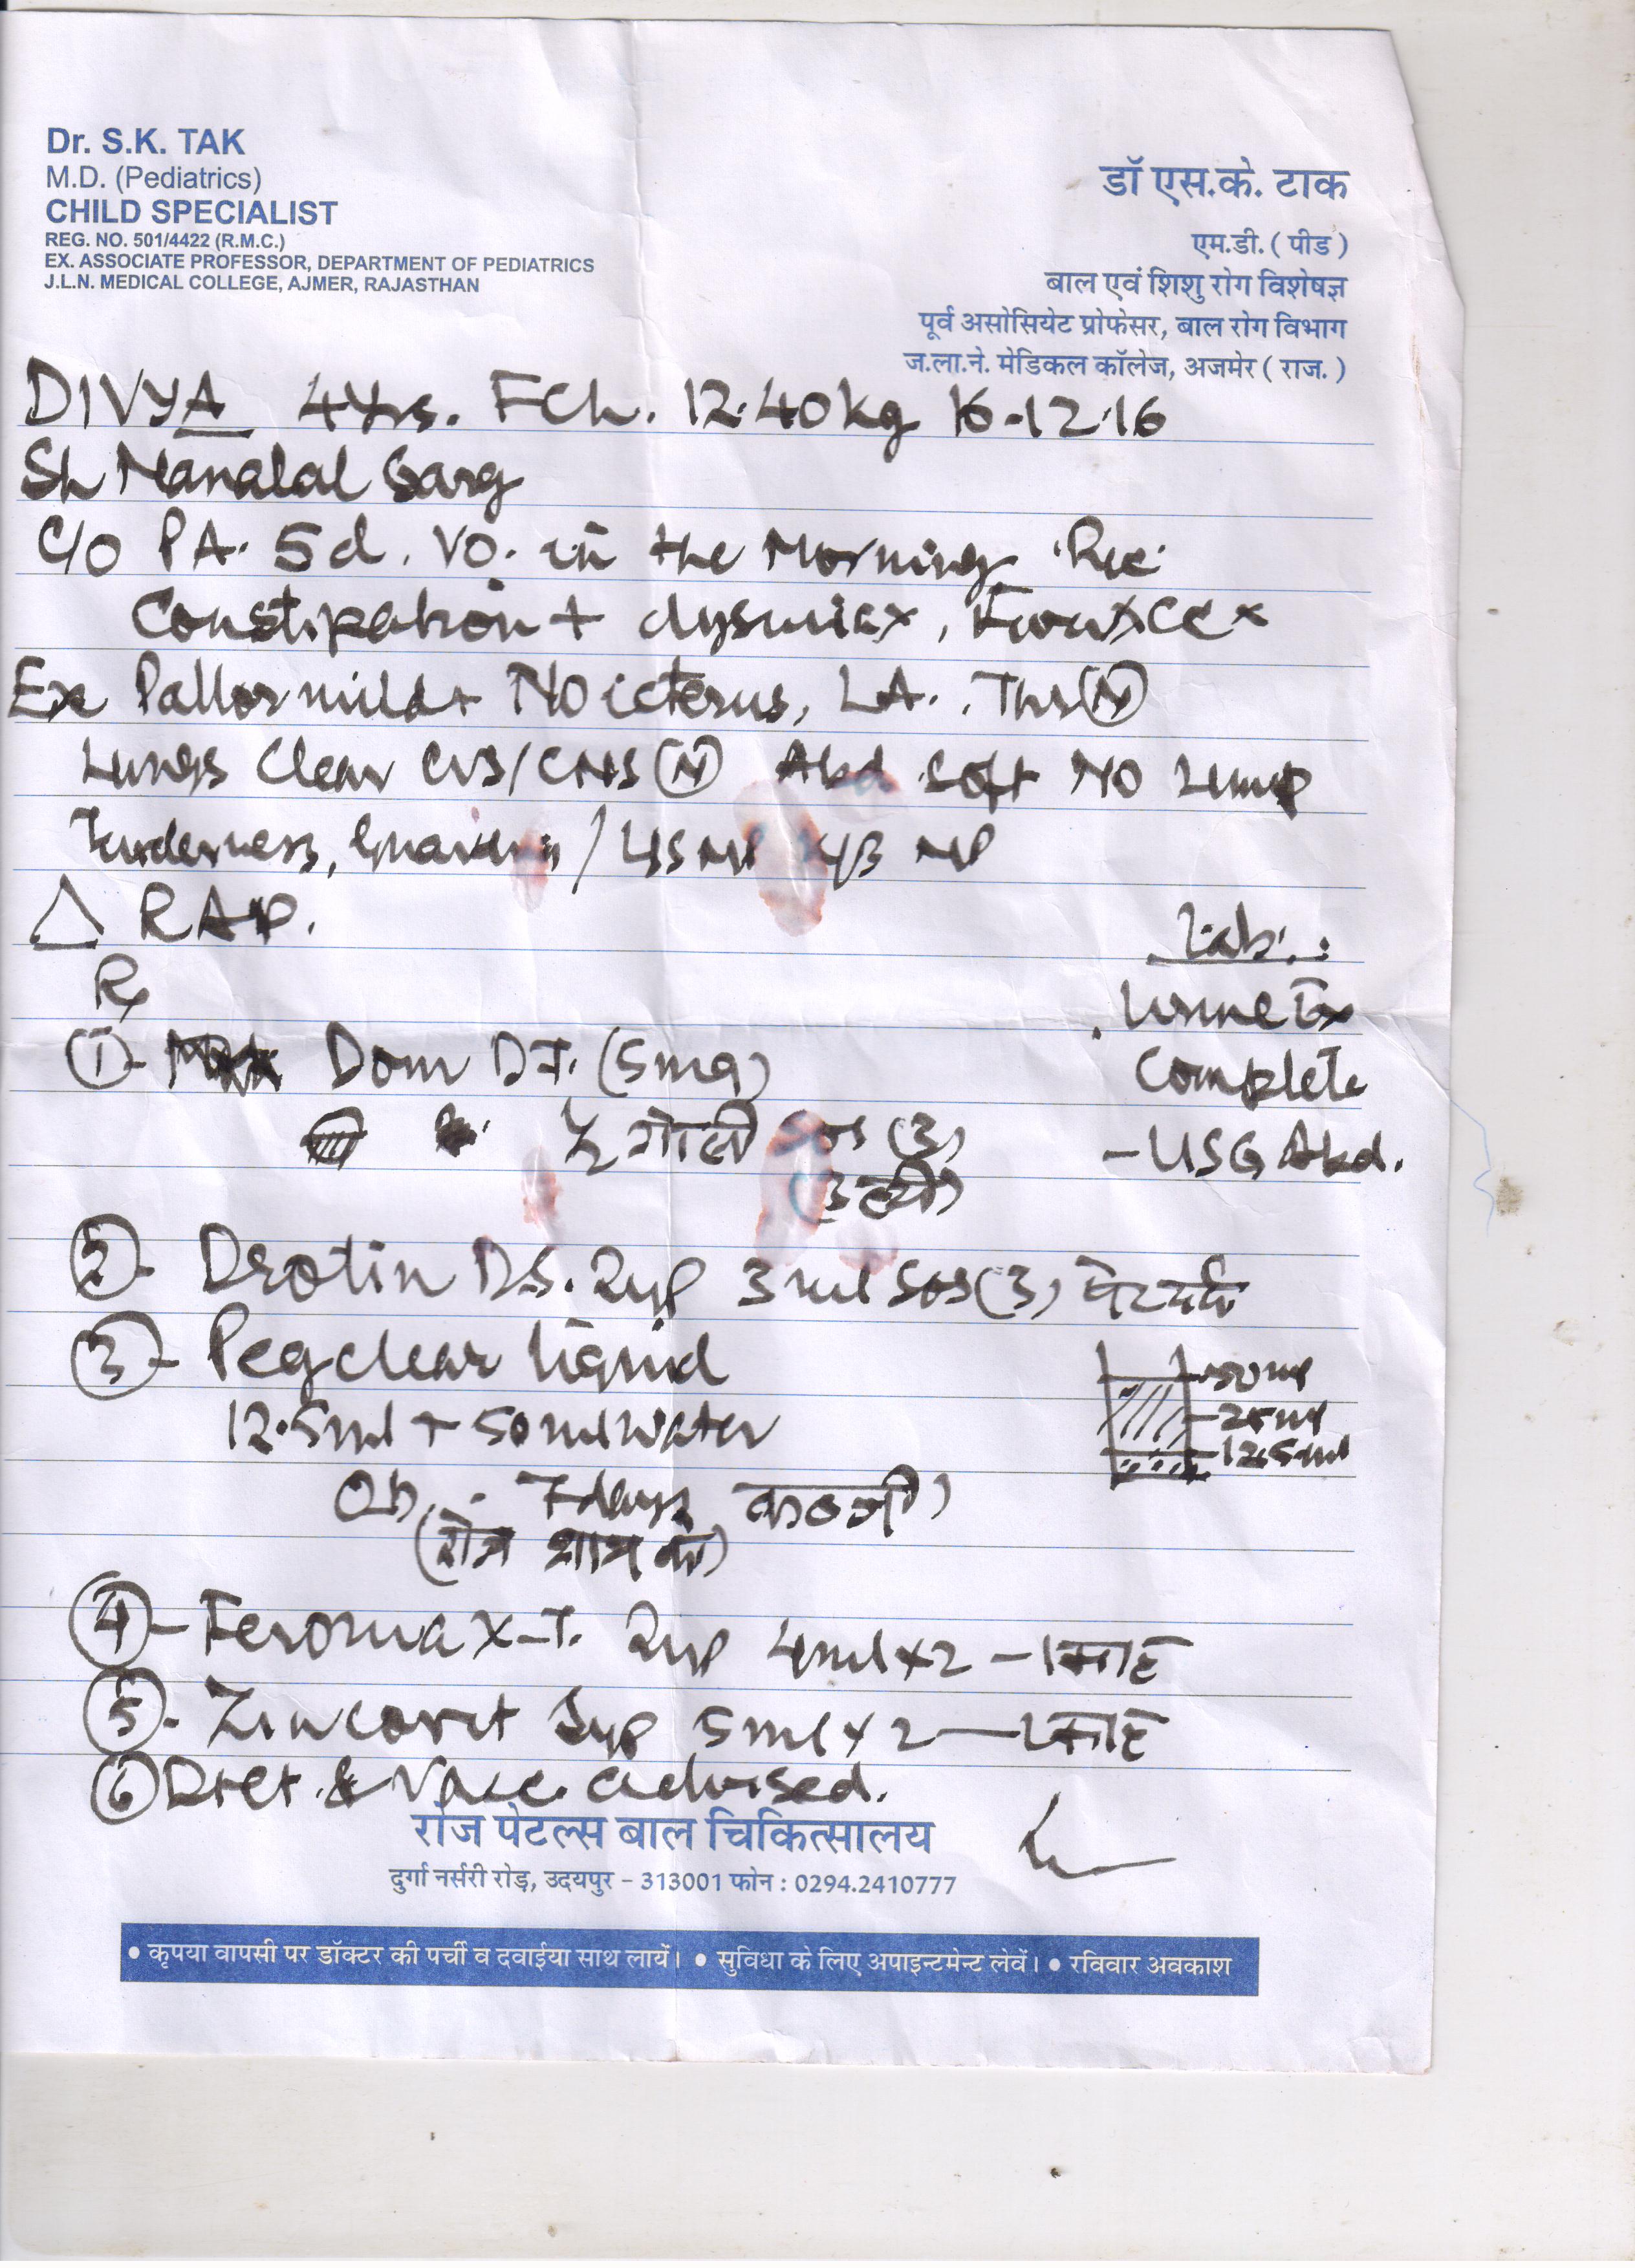 Dr. S.K. TAK
M.D. (Pediatrics)
CHILD SPECIALIST
REG. NO. 501/4422 (R.M.C.)
EX. ASSOCIATE PROFESSOR, DEPARTMENT OF PEDIATRICS
J.L.N. MEDICAL COLLEGE, AJMER, RAJASTHAN
डॉ एस.के. टाक
एम.डी. ( पीड )
बाल एवं शिशु रोग विशेषज्ञ
पूर्व असोसियेट प्रोफेसर, बाल रोग विभाग
ज.ला.ने. मेडिकल कॉलेज, अजमेर ( राज. )
DIVYA 4yrs. FCh. 12.40kg 16-12-16
Sh Garg
C/O PA. 5d. VO. in the Morning Rec.
Constipation + dysuria x,
Ex Pallor mild+ NO icterus, LA. Thr (N)
Lungs Clear CVS/CNS (N) Abd soft NO Lump
Tenderness, / NP
△ RAP.
Rx
① Dom DT. (5mg)
½ गोली sos (3)
(उल्टी)
②- Drotin DS. Syp 3ml SOS (3) पेट दर्द
③- Pegclear liquid
12.5ml + 50ml water
OD. 7days कब्जी)
(रोज शाम को)
50ml
25ml
12.5ml
④- Feromax-T. Syp 4ml x 2 - 1 माह
⑤- Zincovit Syp 5ml x 2 - 1 माह
⑥ Diet & Vacc. advised.
Lab. :
. Urine Ex
Complete
- USG Abd.
रोज पेटल्स बाल चिकित्सालय
दुर्गा नर्सरी रोड़, उदयपुर - 313001 फोन : 0294.2410777
• कृपया वापसी पर डॉक्टर की पर्ची व दवाईया साथ लायें। • सुविधा के लिए अपाइन्टमेन्ट लेवें। • रविवार अवकाश